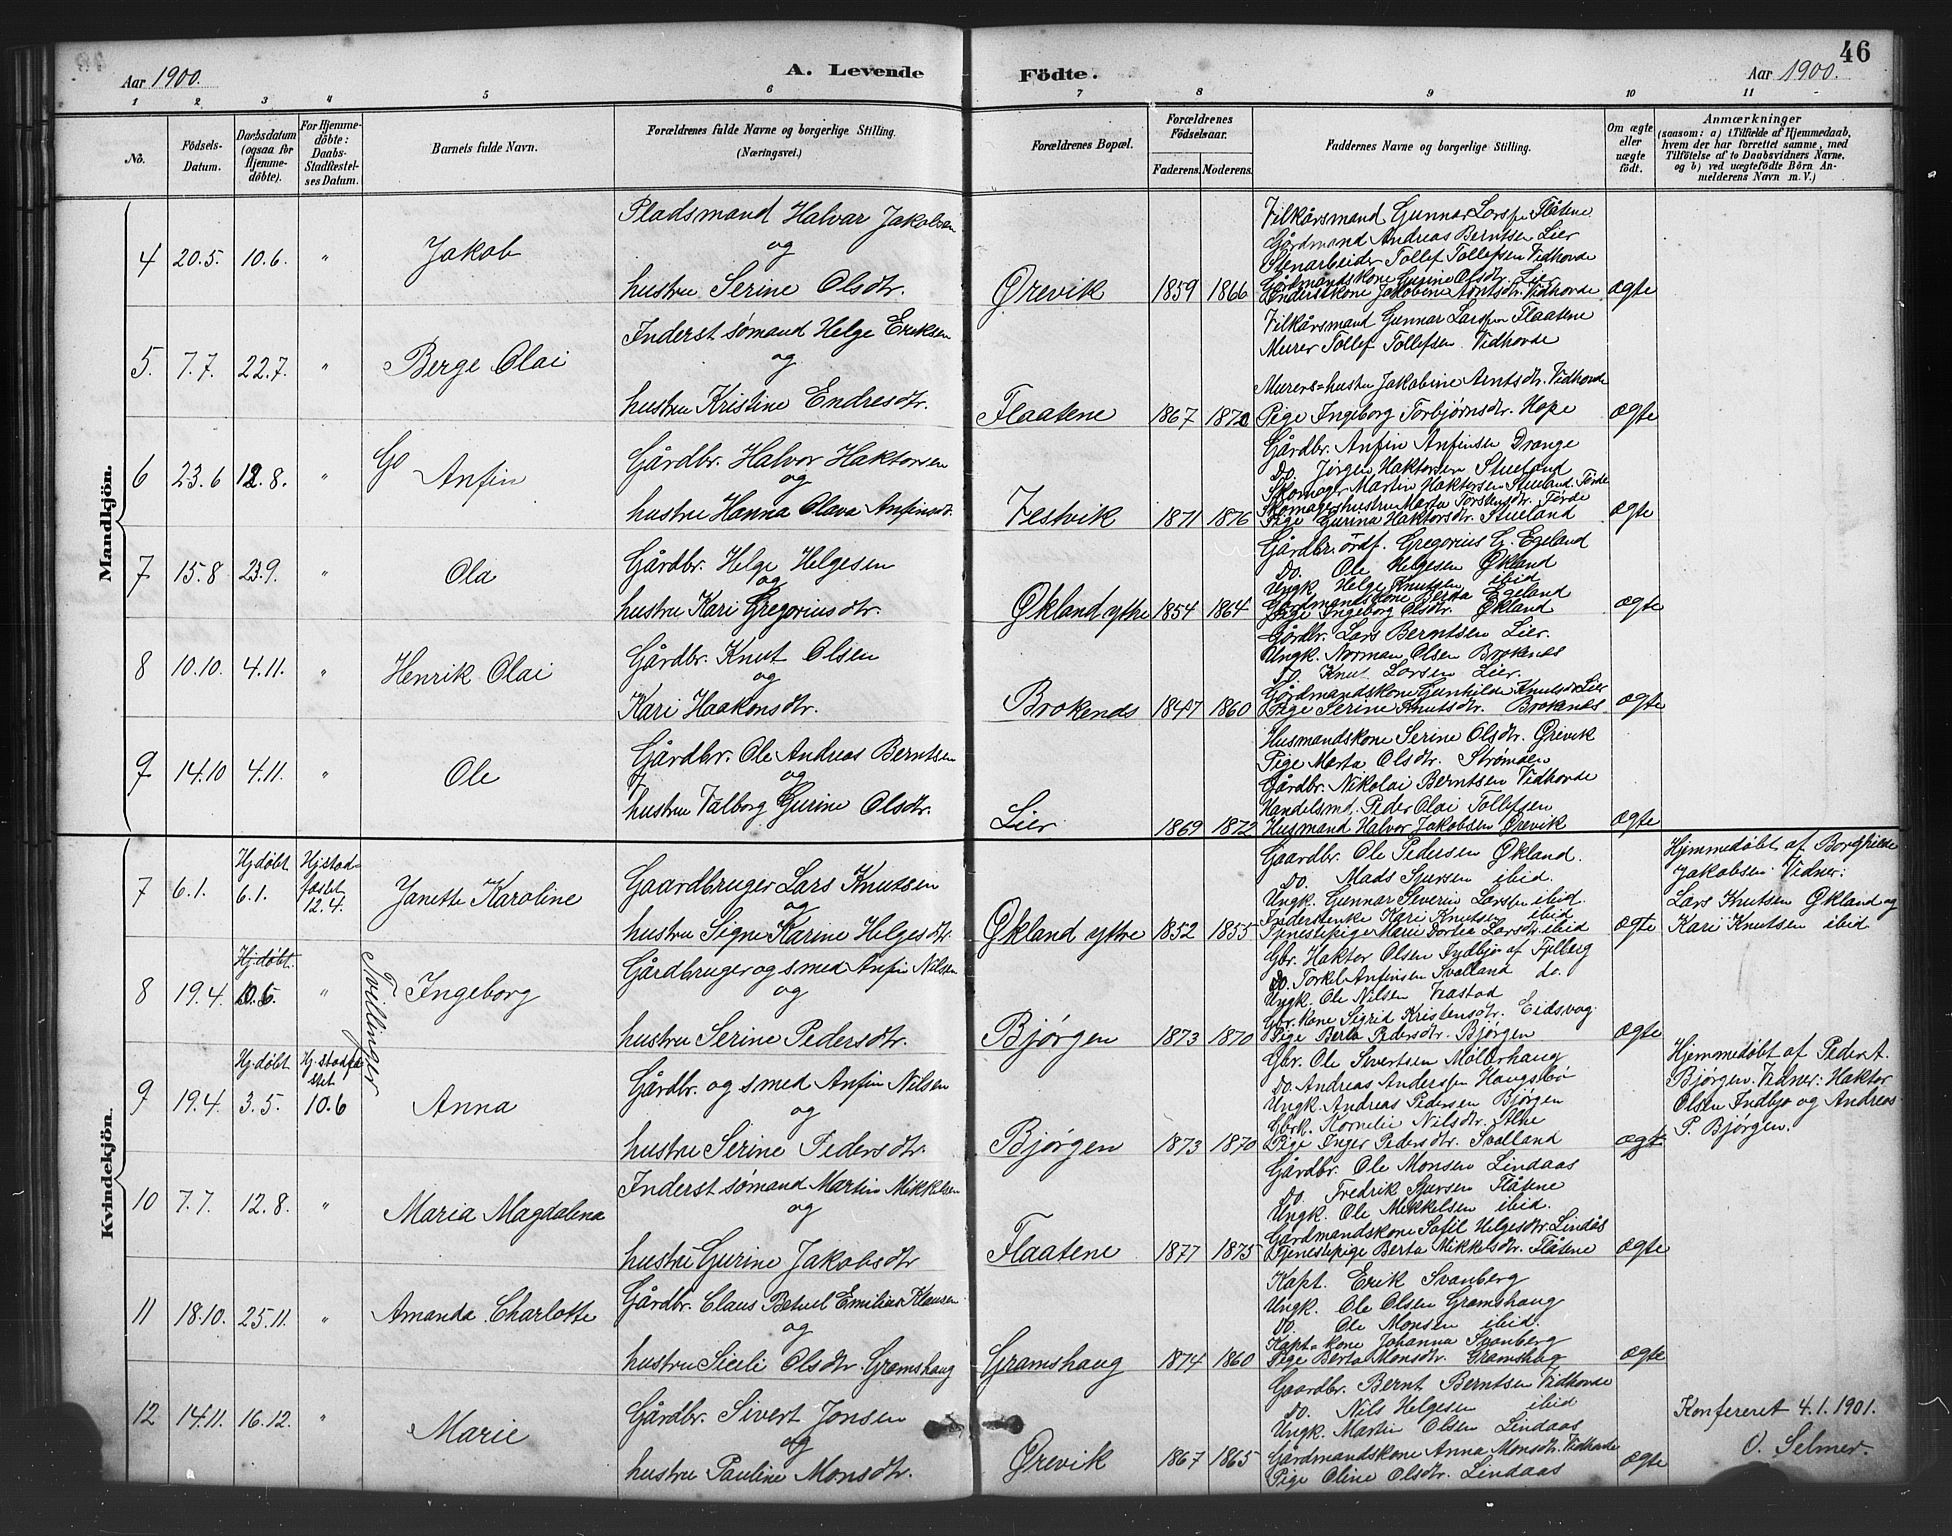 46
Aar 1900. A. Levende Födte. Aar 1900.
1 2 3 4 5 6 7 8 9 10 11
No.
Födsels-Datum.
Daabsdatum (ogsaa for Hjemme-döbte).
For Hjemme-döbte: Daabs-Stadfæstel-ses Datum.
Barnets fulde Navn.
Forældrenes fulde Navne og borgerlige Stilling. (Næringsvei.)
Forældrenes Bopæl.
Forældrenes Födselsaar.
Faderens. Moderens.
Faddernes Navne og borgerlige Stilling.
Om ægte eller uægte födt.
Anmærkninger
(saasom: a) i Tilfælde af Hjemmedaab, hvem der har forrettet samme, med Tilföielse af to Daabsvidners Navne, og b) ved uægtefödte Börn An-melderens Navn m. V.)
Mandkjön.
4 20.5. 10.6. " Jakob
Pladsmand Halvar Jakobsen
og
hustru Serine Olsdtr.
Ørevik 1859 1866
Vilkårsmand Gunnar Larsen Flåtene
Gårdmand Andreas Berntsen Lier
Stenarbeider Tollef Tollefsen Vidhovde
Gårdmandskone Gurine Olsdtr. Lier
Inderstkone Jakobine Arntsdtr. Vidhovde
ægte
5. 7.7. 22.7. " Berge Olai
Inderst sømand Helge Eriksen
og
hustru Kristine Endresdtr.
Flaatene 1867 1870
Vilkårsmand Gunnar Larsen Flaatene
Murer Tollef Tollefsen Vidhovde
Murers=hustru Jakobine Arntsdtr. Vidhovde
Pige Ingeborg Torbjørnsdtr. Hope
ægte
6 23.6 12.8. " Anfin
Gårdbr. Halvor Haktorsen
og
hustru Hanna Olava Anfinsdt.
Vestvik 1871 1876
Gårdbr. Anfin Anfinsen Drange
Do. Jörgen Haktorsen Stueland
Skomager Martin Haktorsen Stueland. Førde
Skomagershustru Marta Torstensdtr. Førde
Pige Gurina Haktorsdtr. Stueland
ægte
7 15.8 23.9. " Ola
Gårdbr. Helge Helgesen
og
hustru Kari Gregoriusdtr.
Økland ytre 1854 1864
Gårdbr. ordf. Gregorius G. Egeland
Do. Ole Helgesen Økland
Ungk. Helge Knutsen ibid
Gårdmandskone Berta Egeland
Pige Ingeborg Olsdtr. Økland
ægte
8 10.10. 4.11. " Henrik Olai
Gårdbr. Knut Olsen
og
Kari Haakonsdtr.
Brokenes 1847 1860
Gårdbr. Lars Berntsen Lier.
Ungk. Norman Olsen Brokenes
Do. Knut Larsen Lier.
Gårdmandskone Gunhilde Knutsdtr. Lier
Pige Serine Knutsdtr. Brokenes.
ægte
9 14.10 4.11. " Ole
Gårdbr. Ole Andreas Berntsen
og
hustru Valborg Gurine Olsdtr.
Lier 1869 1872
Husmandskone Serine Olsdtr. Ørevik
Pige Marta Olsdtr. Strømøen
Gårdbr. Nikolai Berntsen Vidhovde
Handelsmd. Peder Olai Tollefsen
Husmand Halvor Jakobsen Ørevik
ægte
Kvindekjön.
7 6.1. Hj.døbt 6.1. Hj stad-fæstet 12.4. Janette Karoline
Gaardbruger Lars Knutsen
og
hustru Signe Karine Helgesdtr.
Økland ytre 1852 1855
Gaardbr. Ole Pedersen Økland.
Do. Mads Sjursen ibid.
Ungk. Gunnar Severin Larsen ibid.
Inderstenke Kari Knutsen ibid
Tjenestepige Marie Dortea Larsdtr. ibid
ægte
Hjemmedøbt af Borghilde
Jakobsen. Vidner:
Lars Knutsen Økland og
Kari Knutsen ibid
8 19.4. Hj.døbt. 10.6 " Tvillinger Ingeborg
Gårdbruger og smed Anfin Nilsen
og
hustru Serine Pedersdtr.
Bjørgen 1873 1870
Gbr. Haktor Olsen Indbjo af Fjelberg
Do. Torkel Anfinsen Svalland do.
Ungk. Ole Nilsen
Gbr. kone Sigrid Kristensdtr. Eidsvag
Pige Berta Pedersdtr. Bjørgen
ægte
9 19.4. Hj.døbt 3.5. Hj. stadfæ-stet 10.6 Anna
Gårdbr. og smed Anfin Nilsen
og
hustru Serine Pedersdtr.
Bjørgen 1873 1870
Gbr. Ole Sivertsen Møllerhaug
Do. Andreas Andersen Haugsbø
Ungk. Andreas Pedersen Bjørgen
Gbrk. Kornelie Nilsdtr.
Pige Inger Pedersdtr. Svalland
ægte
Hjemmedøbt af Peder A.
Bjørgen. Vidner: Haktor
Olsen Indbjo og Andreas
P. Bjørgen.
10 7.7. 12.8. " Maria Magdalena
Inderst sømand Martin Mikkelsen
og
hustru Gurine Jakobsdtr
Flaatene 1877 1875
Gårdbr. Ole Monsen Lindaas
Do. Fredrik Sjursen Flåtene
Ungk. Ole Mikkelsen ibid.
Gårdmandskone Sofil Helgesdtr. Lindås
Tjenestepige Berta Mikkelsdtr. Flåtene
ægte
11 18.10. 25.11. " Amanda Charlotte
Gårdbr. Claus Betuel Emilius Klausen
og
hustru Sicili Olsdtr. Gramshaug
Gramshaug 1874 1860
Kapt. Erik Svanberg
Ungk. Ole Olsen Gramshaug
Do. Ole Monsen ibid.
Kapt.=kone Johanna Svanberg
Pige Berta Monsdtr. Gramshag
ægte
12 14.11. 16.12. " Marie
Gårdbr. Sivert Jonsen
og
hustru Pauline Monsdtr.
Ørevik 1867 1865
Gaardbr. Bernt Berntsen Vidhovde
Do. Nils Helgesen ibid
Ungk. Martin Olsen Lindaas
Gårdmandskone Anna Monsdtr. Vidhovde
Pige Oline Olsdtr. Lindaas
ægte
Konfereret 4.1.1901.
O. Selmer.